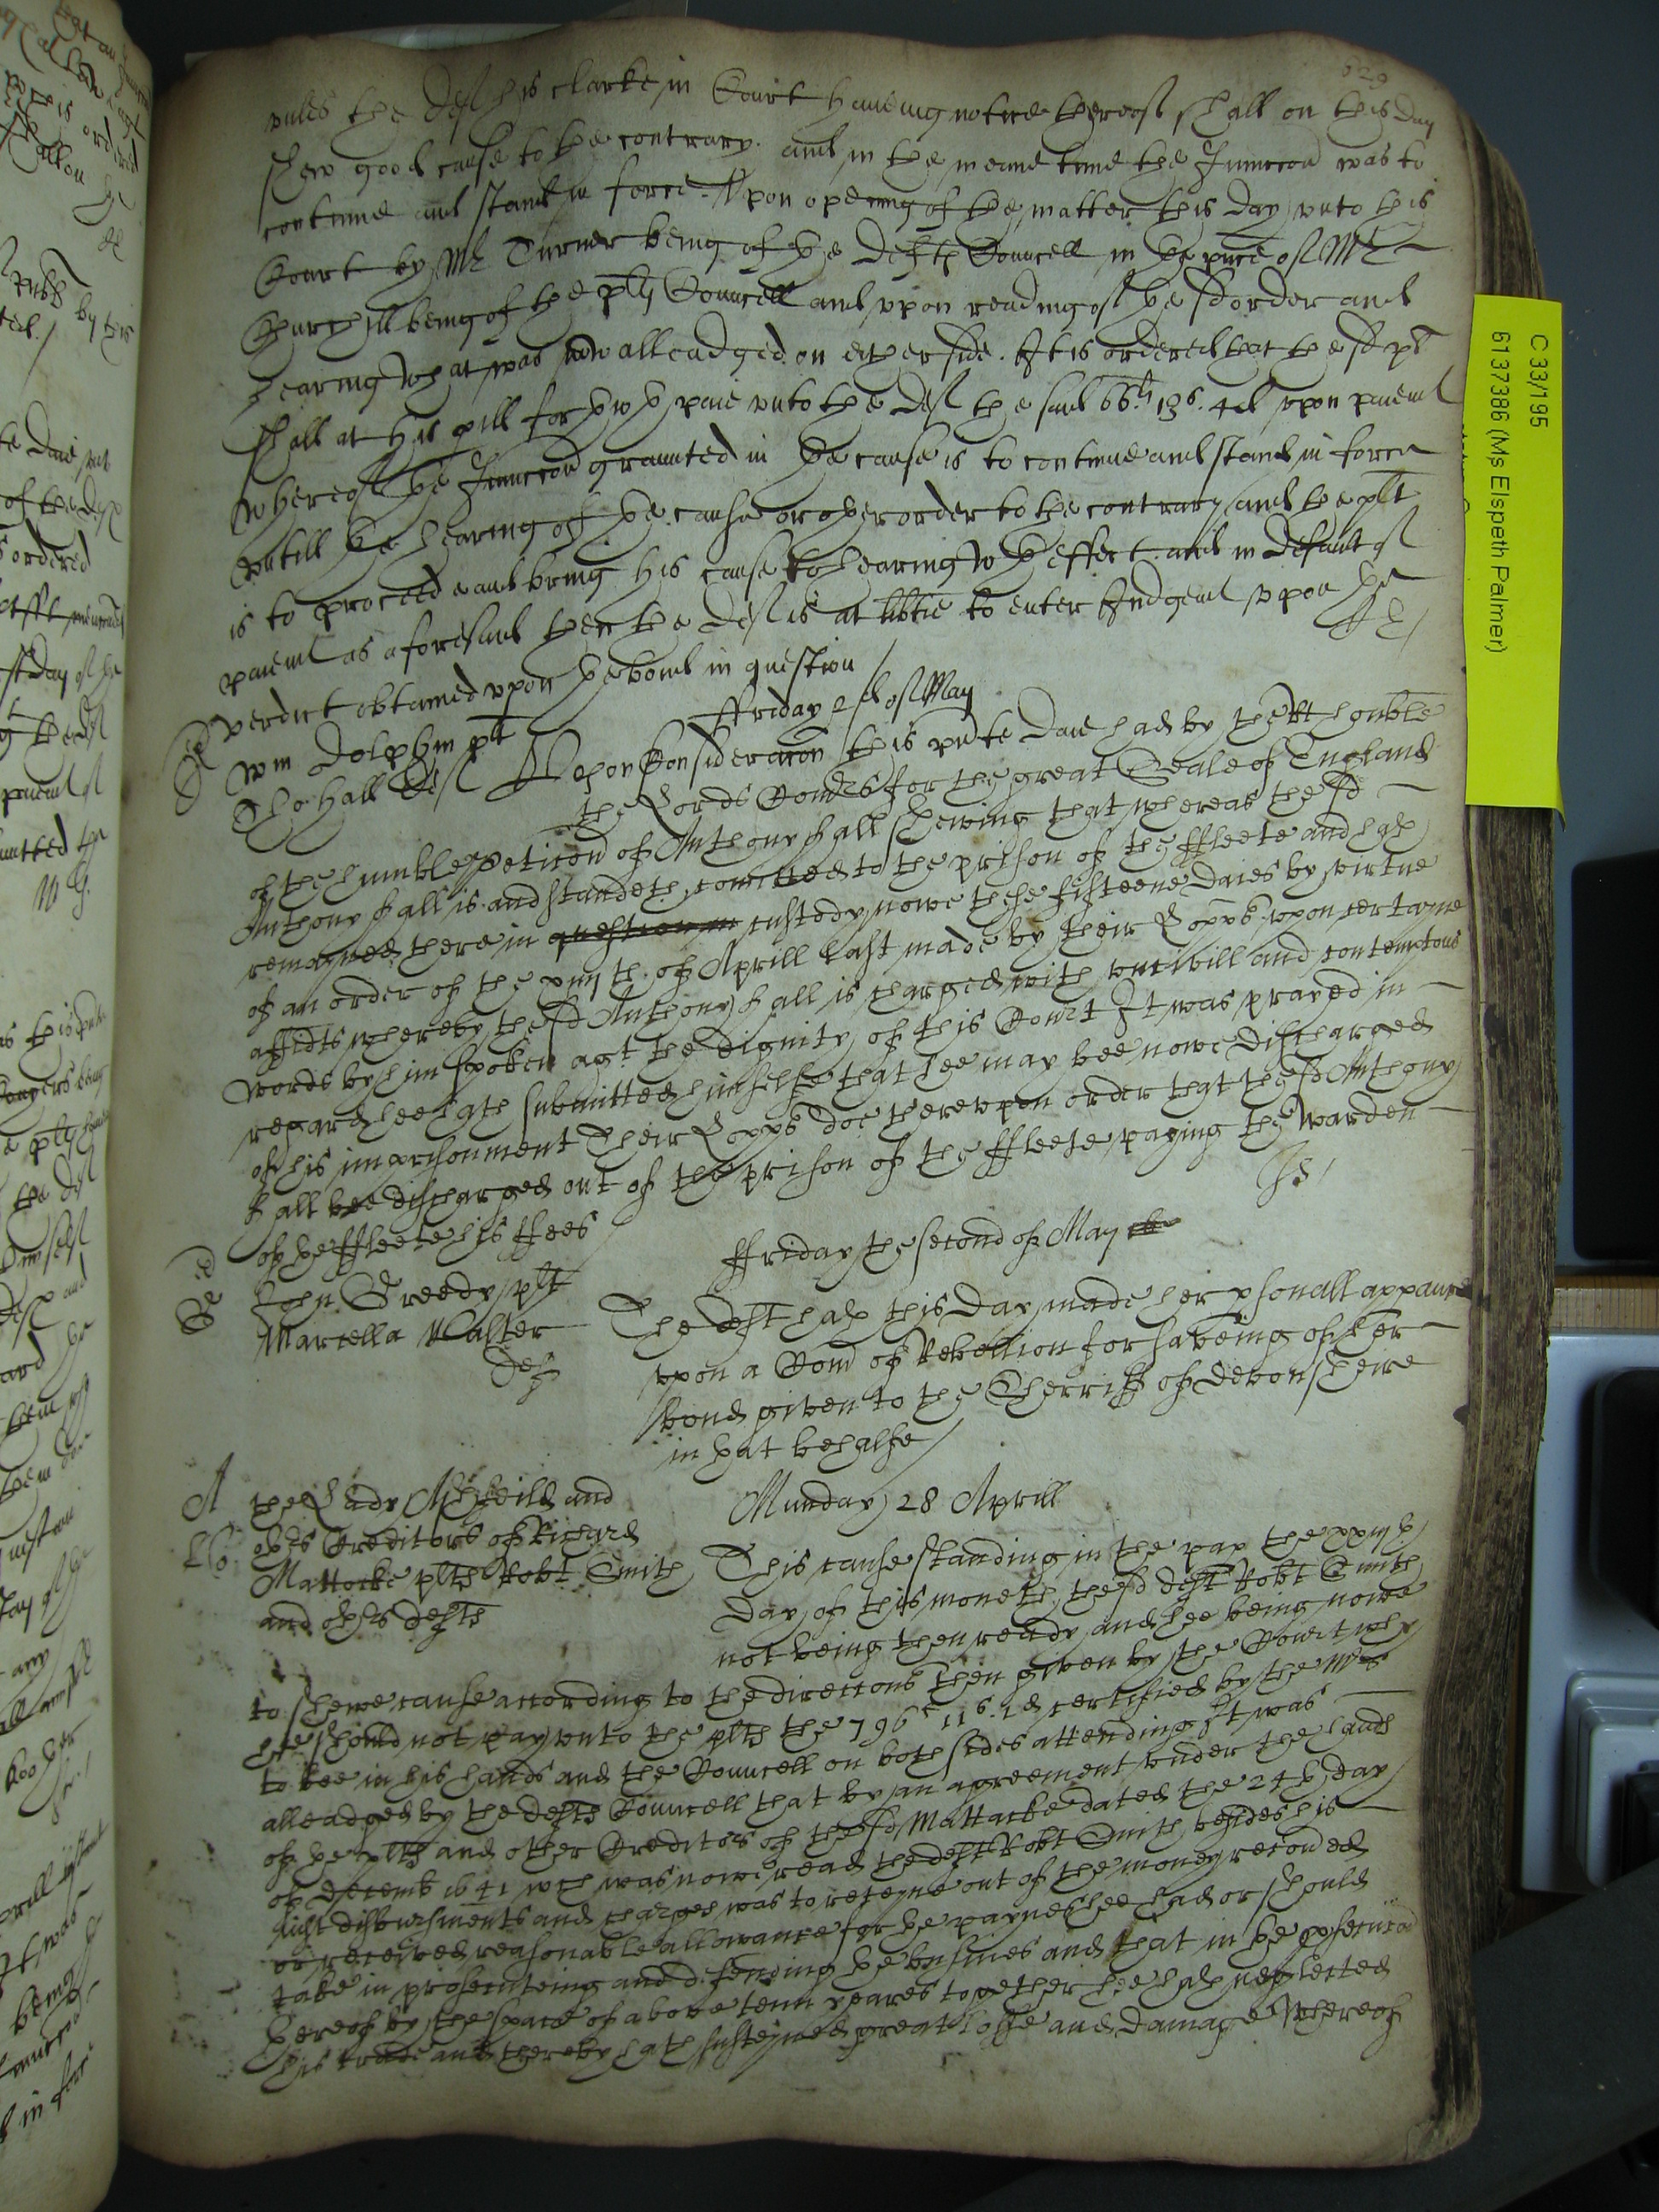 629
unles the Deft his clarke in Court haveing notice thereof shall on this day
shew good cause to the contrary. and in the meane time the Iniuccon was to
continue and stand in force. Upon opening of the matter this day unto this
Court by Mr Turner being of the Defts Councell in the pnce of Mr
Churchill being of the plts Councell and upon reading of the sd order and
hearing what was now alleadged on either side. It is ordered that the sd plt
shall at his pill forthwth paie unto the Deft the said 66li 13s. 4d upon paiemt
whereof the Iniuccon graunted in the cause is to continue and stand in force
untill the hearing of the cause or other order to the contrary and the plt
is to proceede and bring his cause to hearing wth effect. and in default of
paiemt as aforesaid then the Deft is at libtie to enter Iudgemt upon the
verdict obtained upon the bond in question
ffriday 2d of May
Wm Dolphin plt
Tho: Hall Deft
Uppon Consideracon this pnte Daie had by the Rt honble
the Lords Comrs for the great Seale of England
of the humble peticon of Anthony Hall shewing that whereas the sd
Anthony Hall is and standeth comitted to the prison of the ffleete and hath
remayned there in custody nowe these fifteene daies by virtue
of an order of the xviijth of Aprill last made by their Lopps upon certayne
affidts whereby the sd Anthony Hall is charged with uncivill and contemptous
words by him spoken agt the dignity of this Court It was prayed in
regard hee hath submitted himselfe that hee may bee nowe discharged
of his imprisonment Their Lopps doe thereupon order that the sd Anthony
Hall bee discharged out of the prison of the ffleete paying the Warden
of the ffleete his ffees
ffriday the second of May
John Greedy plt
Marcella Walter
Deft
The deft hath this day made her psonall appaunce
upon a Com of Rebellion for saveing of her
bond given to the Sherriff of Devonsheire
in that behalfe
A
the Lady and
othrs Creditors of Richard
Mattocke plts Robt Smith
and othrs defts
Munday 28 Aprill
This cause standing in the pap the xxiijth
day of this moneth the sd deft Robt Smith
not being then ready and hee being nowe
to shewe cause according to the direccons then given by the Court why
hee should not pay unto the plts the 796li 11s. 1d certified by the Mr
to bee in his hands and the Councell on both sides attending It was
alleadged by the defts Councell that by an agreement under the hands
of the plts and other Creditors of the sd Mattacke dated the 24th day
of Decemb 1641 wch was nowe read the deft Robt Smith besides his
iust disbursments and charges was to reteyne out of the money recovded
or received reasonable allowance for the paynes hee had or should
take in prosecuteing and defending the busines and that in the psecucon
thereof by the space of above tenn yeares together hee hath neglected
his trade and thereby hath susteyned great losse and damage Whereof
C 33/195
6137386 (Ms Elspeth Palmer)